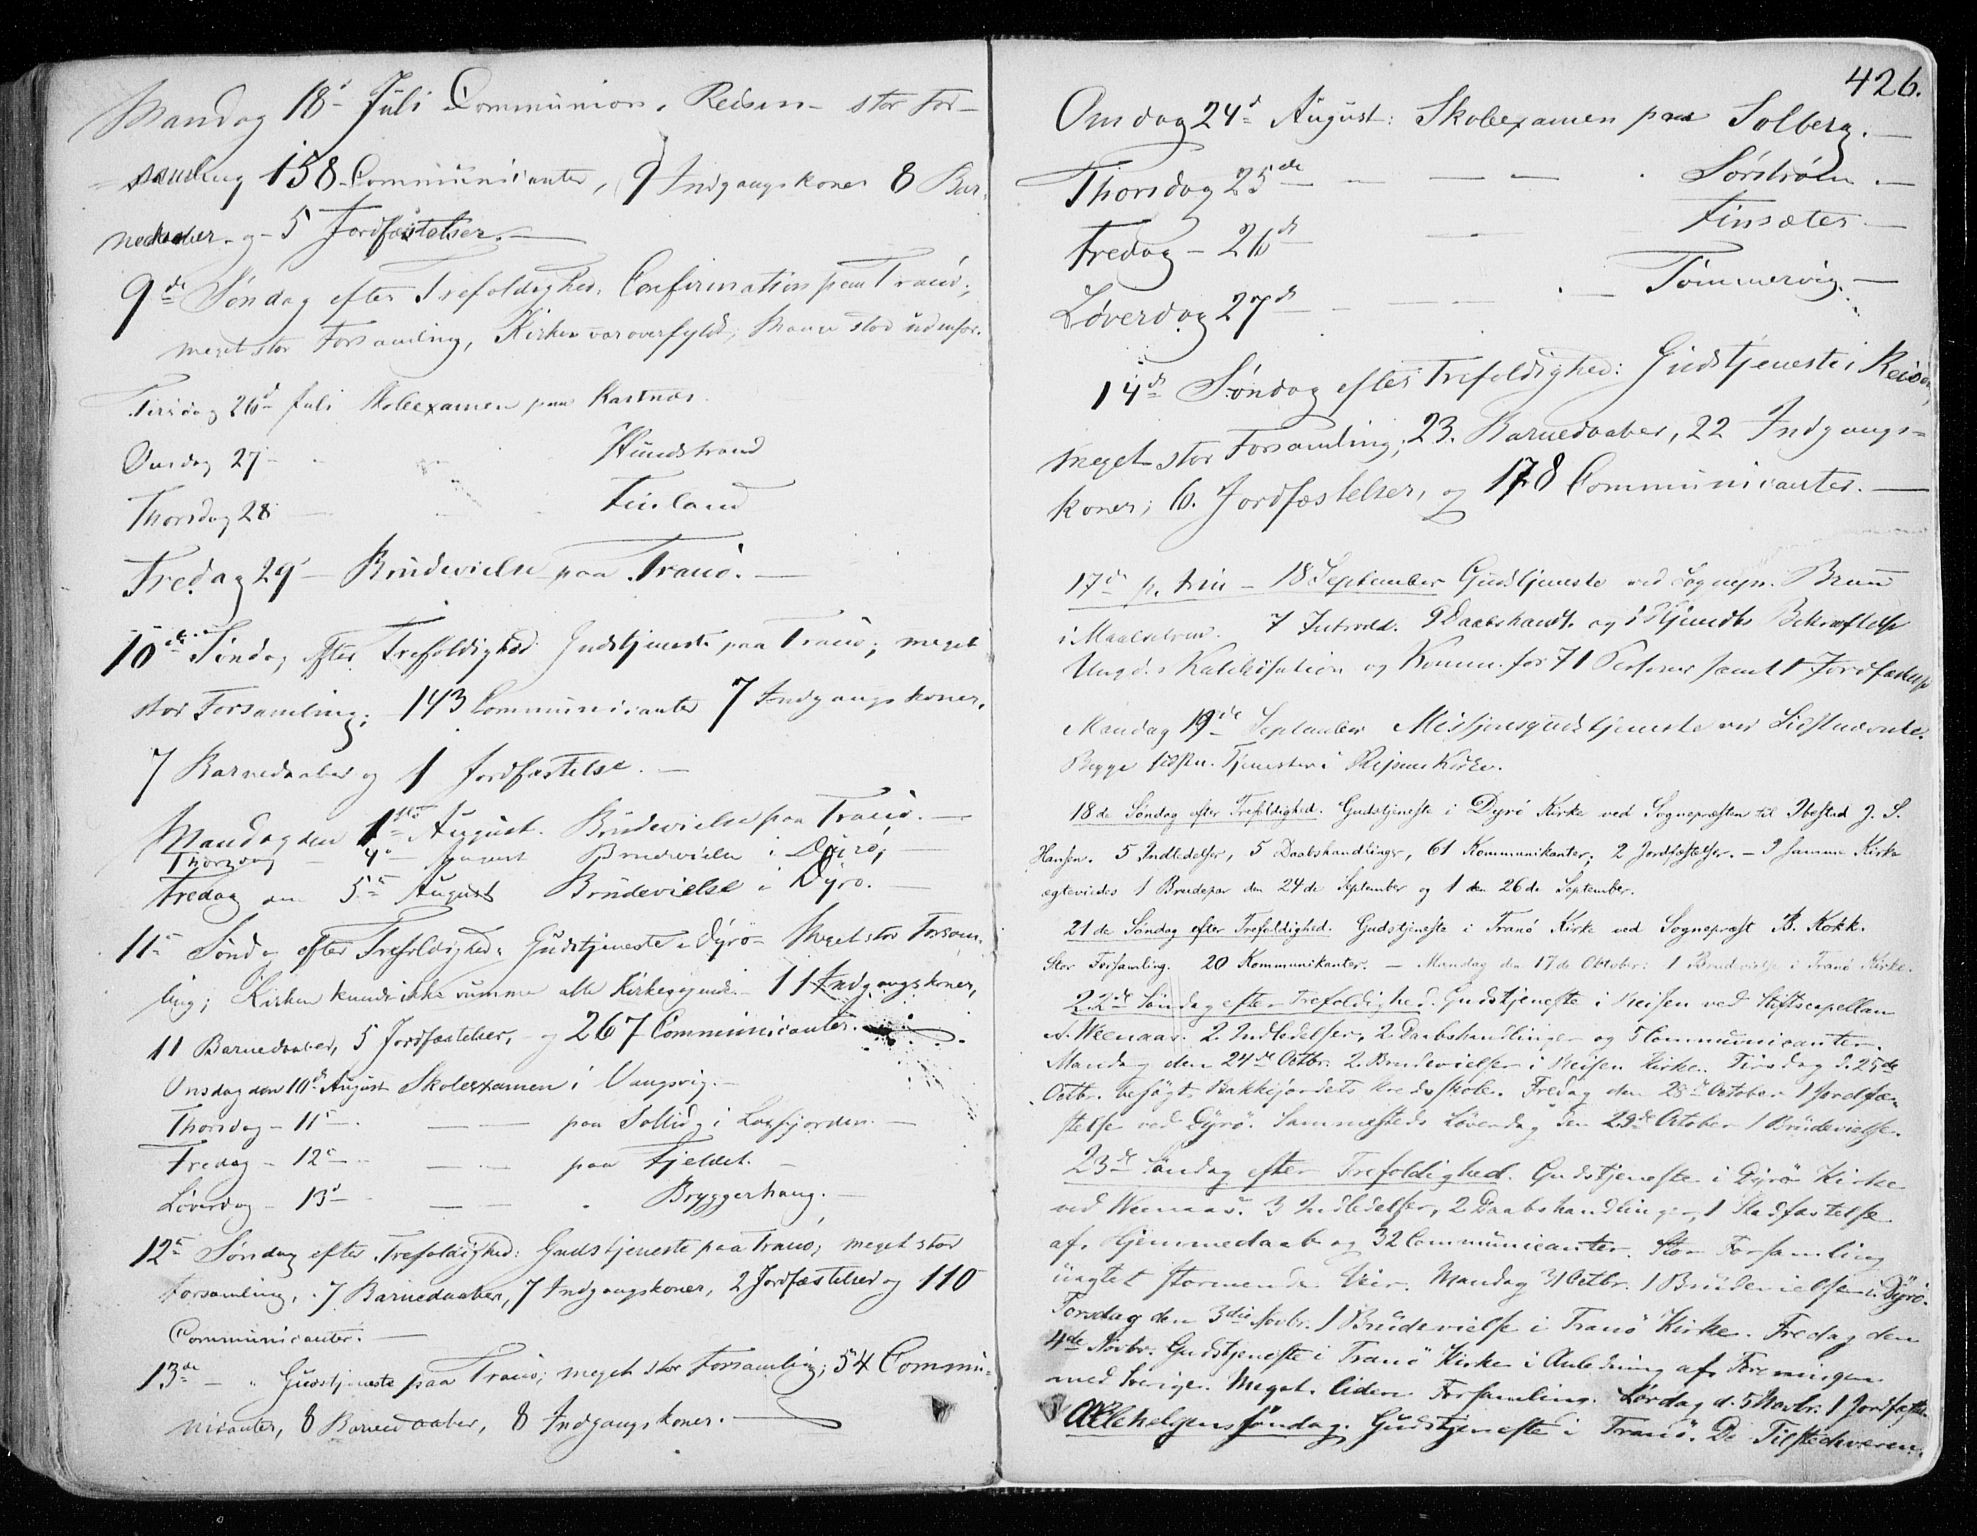 Mandag 18d Juli Communion i Reisen stor For-
samling 158 Communicanter, 9 Indgangskoner 8 Bar-
nedaaber og 5 Jordfæstelser.
9de Søndag efter Trefoldighed. Confirmation paa Tranø;
meget stor Forsamling, Kirken var overfyldt, Mange stod udenfor.
Tirsdag 26d Juli Skoleexamen paa Kastnæs.
Onsdag 27 Hundstrand
Thorsdag 28 Finland
Fredag 29 Brudevielse paa Tranø.
10de Søndag efter Trefoldighed Gudstjeneste paa Tranø; meget
stor Forsamling; 143 Communicanter 7 Indgangskoner,
7 Barnedaaber og 1 Jordfæstelse.
Mandag den 1ste August. Brudevielse paa Tranø.
Thorsdag 4de August Brudevielse i Dyrø,
Fredag den 5te August Brudevielse i Dyrø.
11te Søndag efter Trefoldighed: Gudstjeneste i Dyrø Meget stor Forsam-
ling; Kirken kunde ikke rumme alle Kirkesøgende. 11 Indgangskoner,
11 Barnedaaber, 5 Jordfæstelser, og 267 Communicanter.
Onsdag den 10de August Skoleexamen i Vangsvig.
Thorsdag 11te paa Sollid i Laxfjorden.
Fredag 12te paa Fjeldet.
Løverdag 13d Bryggerhaug.
12te Søndag efter Trefoldighed: Gudstjeneste paa Tranø; meget stor
Forsamling, 7 Barnedaaber, 7 Indgangskoner, 2 Jordfæstelser og 110
Communicanter.
13de " Gudstjeneste paa Tranø; meget stor Forsamling; 54 Commu-
nicanter, 8 Barnedaaber, 8 Indgangskoner.
426.
Onsdag 24d August: Skoleexamen paa Solberg.
Thorsdag 25de Sørstrøm
Fredag 26d Finsæter
Løverdag 27d Tømmervig.
14d Søndag efter Trefoldighed: Gudstjeneste i Reisen,
meget stor Forsamling, 23. Barnedaaber, 22 Indgangs-
koner, 6. Jordfæstelser, og 178 Communicanter.
17de p. trin 18 September Gudstjeneste ved Sognepr. Bruun
i Maalselven. 7 Introdd. 9 Daabshandl. og Bekræftelse
Ungd. Katekisation og Komm. for 71 Personer samt 1 Jordfæstelse
Mandag 19de September Missjonsgudstjeneste ved Sidstnævnte.
Begge sidstn. Tjenester i Reisens Kirke.
18de Søndag efter Trefoldighed. Gudstjeneste i Dyrø Kirke ved Sognepræsten til Ibestad J. S.
Hansen. 5 Indledelser, 5 Daabshandlinger, 61 Kommunikanter, 2 Jordfæstelser. — I samme Kirke
egteviedes 1 Brudepar den 24de September og 1 den 26de September.
21de Søndag efter Trefoldighed. Gudstjeneste i Tranø Kirke ved Sognepræst B. Kokk.
Stor Forsamling. 20 Kommunikanter. — Mandag den 17de Oktober: 1 Brudevielse i Tranø Kirke.
22de Søndag efter Trefoldighed. Gudstjeneste i Reisen ved Stiftscapellan
A. Weenaas. 2 Indledelser, 2 Daabshandlinger og 5 Communicanter.
Mandag den 24de Octbr. 2 Brudevielser i Reisen Kirke. Tirsdag d. 25de
Octbr. besøgt Bakkejordets Kredsskole. Fredag den 28de October 1 Jordfæ-
stelse ved Dyrø. Sammesteds Løverdag den 29de October 1 Brudevielse.
23de Søndag efter Trefoldighed. Gudstjeneste i Dyrø Kirke
ved Weenaas. 3 Indledelser, 2 Daabshandlinger, 1 Stadfæstelse
af Hjemmedaab og 32 Communicanter. Stor Forsamling
uagtet stormende Veir. Mandag 31 Octbr. 1 Brudevielse i Dyrø.
Torsdag den 3die Novbr. 1 Brudevielse i Tranø Kirke. Fredag den
4de Novbr. Gudstjeneste i Tranø Kirke i Anledning af Foreningen
med Sverige. Meget liden Forsamling. Lørdag d. 5 Novbr. 1 Jordfæstelse
Allehelgenssøndag, Gudstjeneste i Tranø. De Tilstedeværen-